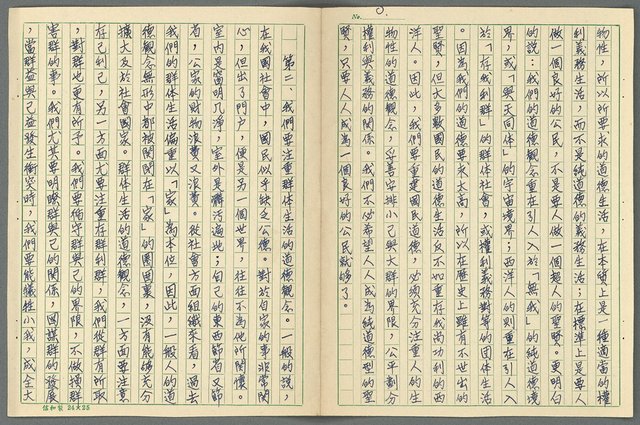 No.
物性，所以所要求的道德生活，在本質上是一種適當的權
利義務生活，而不是純道德的義務生活；在標準上是要人
做一個良好的公民，不是要人做一個超人的聖賢。更明白
的說：我們的道德觀念重在引人入於「無我」的純道德境
界，或「與天同体」的宇宙境界；西洋人的則重在引人入
於「在我利群」的群体社會，或權利義務對等的團体生活
。因為我們的道德要求太高，所以在歷史上雖有不世出的
聖賢，但大多數國民的道德生活反不如重在我尚功利的西
洋人。因此，我們要重建國民道德，必須充分注意人生的
物性的道德觀念，妥善安排小己與大群的界限，公平劃分
權利與義務的關係。我們不必希望人人成為純道德型的聖
賢，只要人人成為一個良好的公民就够了。
第二、我們要注重群体生活的道德觀念。一般的說，
在我國社會中，國民似乎缺乏公德。對於自家的事非常關
心，但出了門戶，便是另一個世界，往往不為他所關懷。
室内是窗明几淨，室外是髒活遍地；自己的東西節省又節
省，公家的財物浪費又浪費。從社會方面組織來看，過去
我們的群体生活偏重以「家」為本位，因此，一般人的道
德觀念無形中都被関閉在「家」的圈圈裏，沒有能够充分
擴大及於社會國家。群体生活的道德觀念，一方面要注意
在己利己，另一方面尤要注重在群利群，我們從群有所取
，對群也更有所予。我們要恪守群與己的界限，不做損群
害群的事。我們尤其要明瞭群與己的關係，圖謀群的發展
，當群益與己益發生衝突時，我們要能犧牲小我，成全大
信和製 24×25